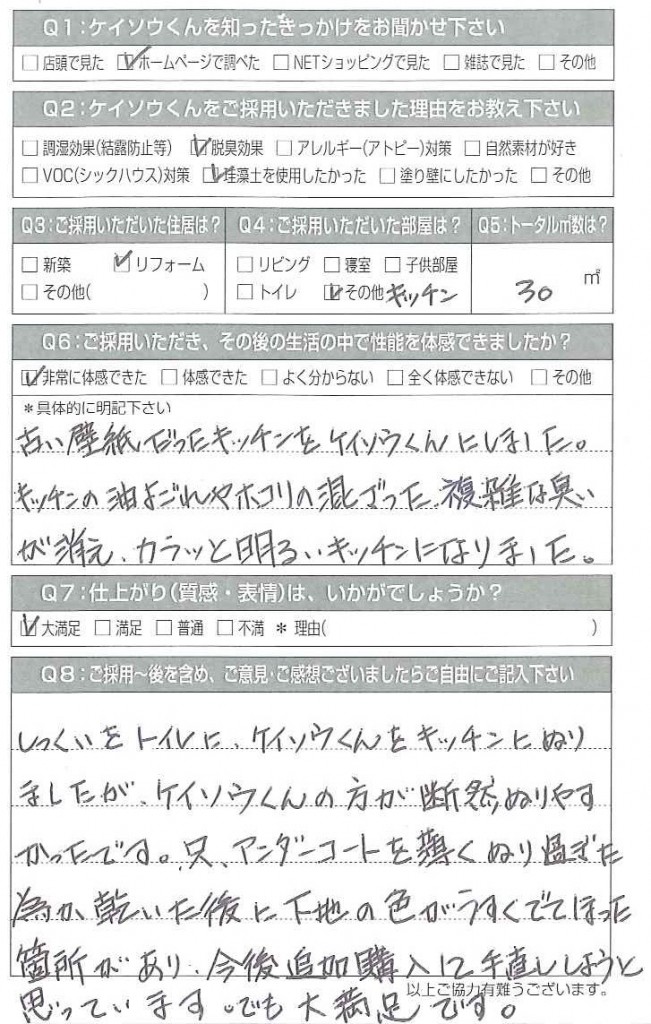 Q1:ケイソウくんを知ったきっかけをお聞かせ下さい
□店頭で見た ☑ホームページで調べた □NETショッピングで見た □雑誌で見た □その他
Q2:ケイソウくんをご採用いただきました理由をお教え下さい
□調湿効果(結露防止等) ☑脱臭効果 □アレルギー(アトピー)対策 □自然素材が好き
□VOC(シックハウス)対策 ☑珪藻土を使用したかった □塗り壁にしたかった □その他
Q3:ご採用いただいた住居は?
□新築 ☑リフォーム
□その他( )
Q4:ご採用いただいた部屋は?
□リビング □寝室 □子供部屋
□トイレ ☑その他 キッチン
Q5:トータル㎡数は?
30 ㎡
Q6:ご採用いただき、その後の生活の中で性能を体感できましたか?
☑非常に体感できた □体感できた □よく分からない □全く体感できない □その他
*具体的に明記下さい
古い壁紙だったキッチンをケイソウくんにしました。
キッチンの油よごれやホコリの混じった、複雑な臭い
が消え、カラッと明るいキッチンになりました。
Q7:仕上がり(質感・表情)は、いかがでしょうか?
☑大満足 □満足 □普通 □不満 *理由( )
Q8:ご採用~後を含め、ご意見・ご感想ございましたらご自由にご記入下さい
しっくいをトイレに、ケイソウくんをキッチンにぬり
ましたが、ケイソウくんの方が断然ぬりやす
かったです。只、アンダーコートを薄くぬり過ぎた
為か、乾いた後に下地の色がうすくでてしまった
箇所があり、今後追加購入にて手直ししようと
思っています。でも大満足です。
以上ご協力有難うございます。